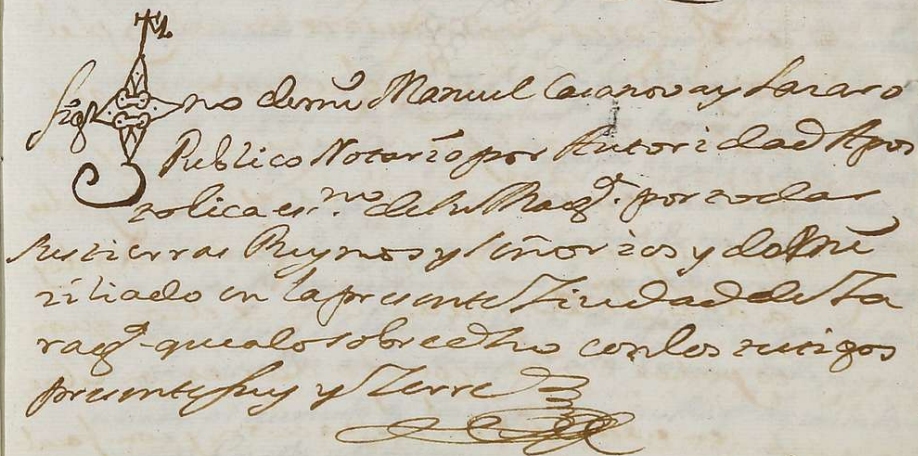 Sig no de mi Manuel Casanova y Lazaro
Publico Notario por Autoridad Apos
tolica es.no de Su Mag.d por todas
sus tierras Reynos y Señorios y domi
ziliado en la presente Ziudad de Za
rag.a que a lo sobre dho con los testigos
presente fuy y Zerre